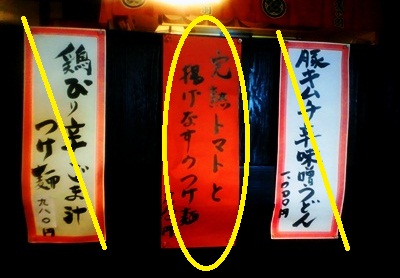 豚キムチ辛味噌うどん
一、〇〇〇円
完熟トマトと
揚げなすのつけ麺
鶏ぶり辛ごま汁
つけ麺
九八〇円